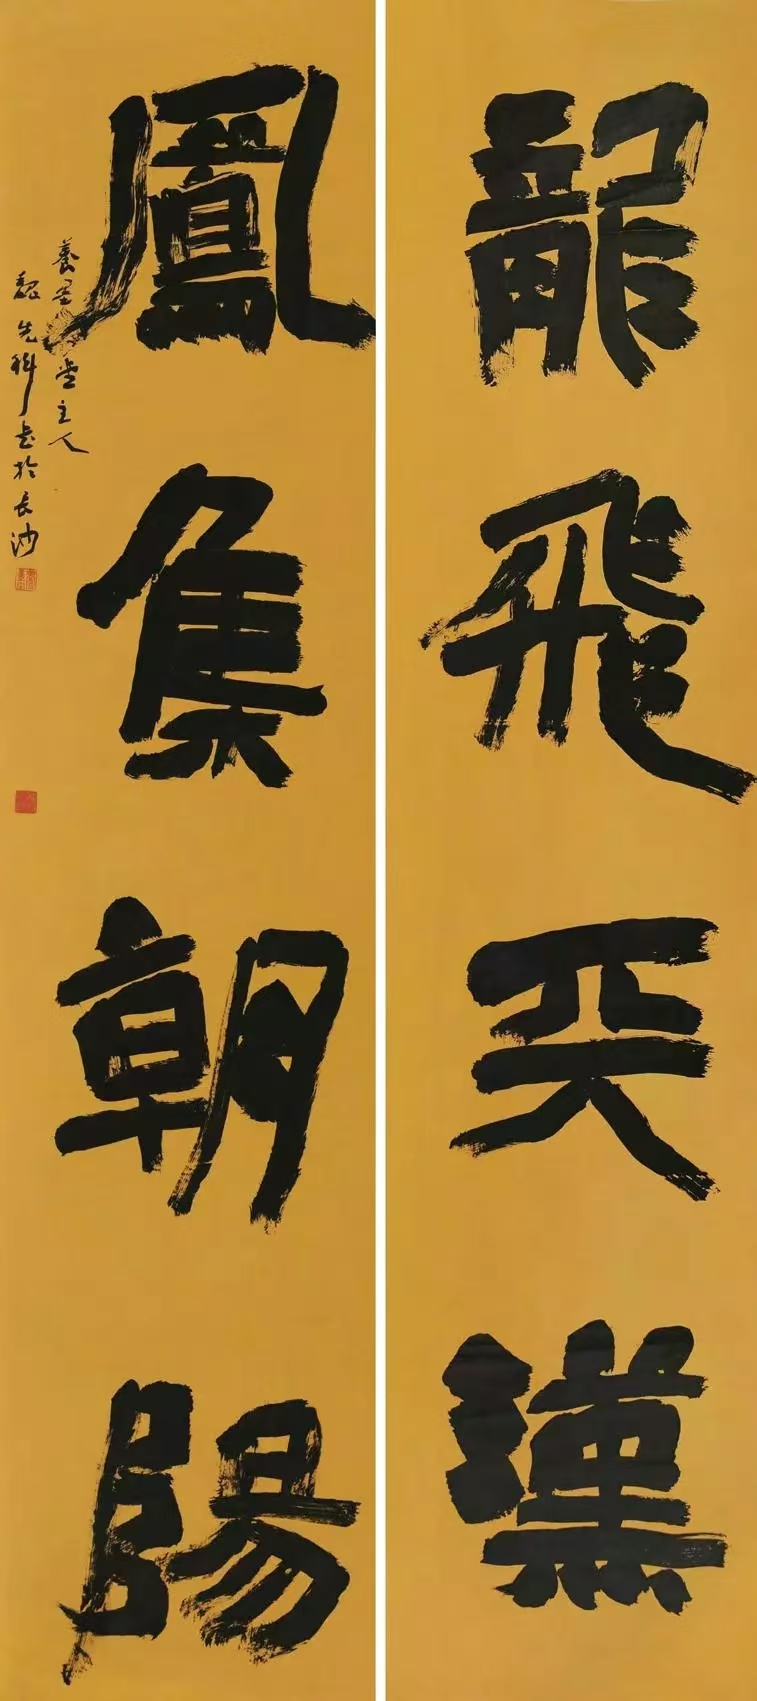 龍飛天漢
鳳集朝陽
養堂主人
魏先科書於長沙